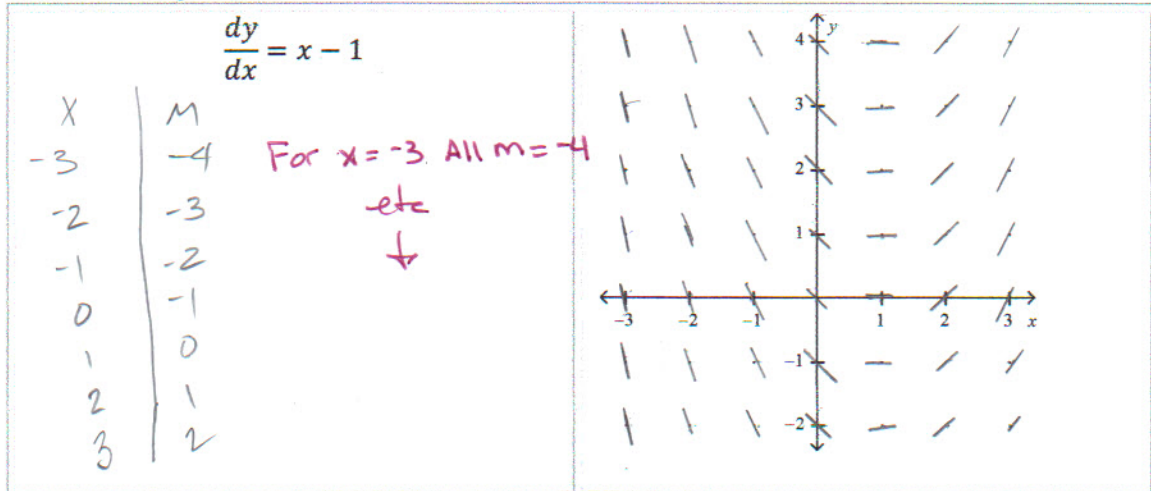 dy
dx
= x − 1
X M
-3 -4
-2 -3
-1 -2
0 -1
1 0
2 1
3 2
For x = -3 All m = -4
etc
↓
y
4
3
2
1
−3 −2 −1 1 2 3 x
−1
−2